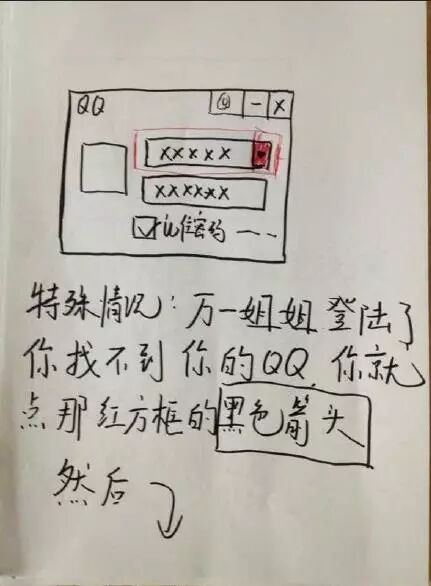 QQ
xxxxx
xxxxxx
记住密码
特殊情况：万一姐姐登陆了
你找不到你的QQ，你就
点那红方框的黑色箭头
然后